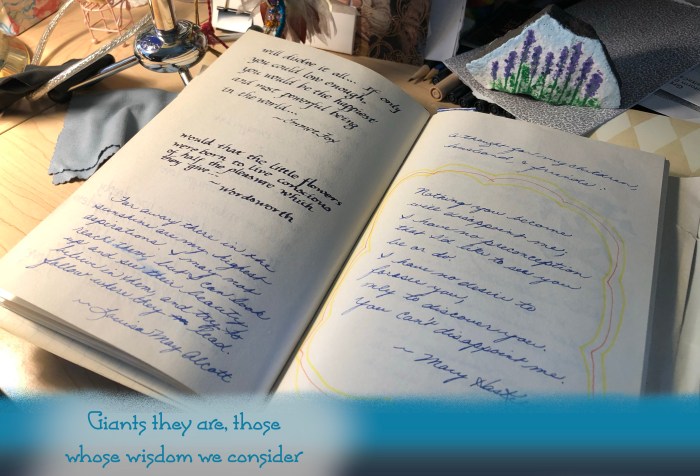 will dissolve it all... If only
you could love enough,
you would be the happiest
and most powerful being
in the world...
~ Emmet Fox
Would that the little flowers
were born to live conscious
of half the pleasure which
they give..
~ Wordsworth
Far away there in the
sunshine are my highest
aspirations. I may not
reach them, but I can look
up and see their beauty,
believe in them, and try to
follow where they lead.
~ Louisa May Alcott
a thought for my children,
husband & friends:
Nothing you become
will disappoint me;
I have no preconception
that I'd like to see you
be or do.
I have no desire to
foresee you,
only to discover you.
You can't disappoint me.
~ Mary
Giants they are, those
whose wisdom we consider